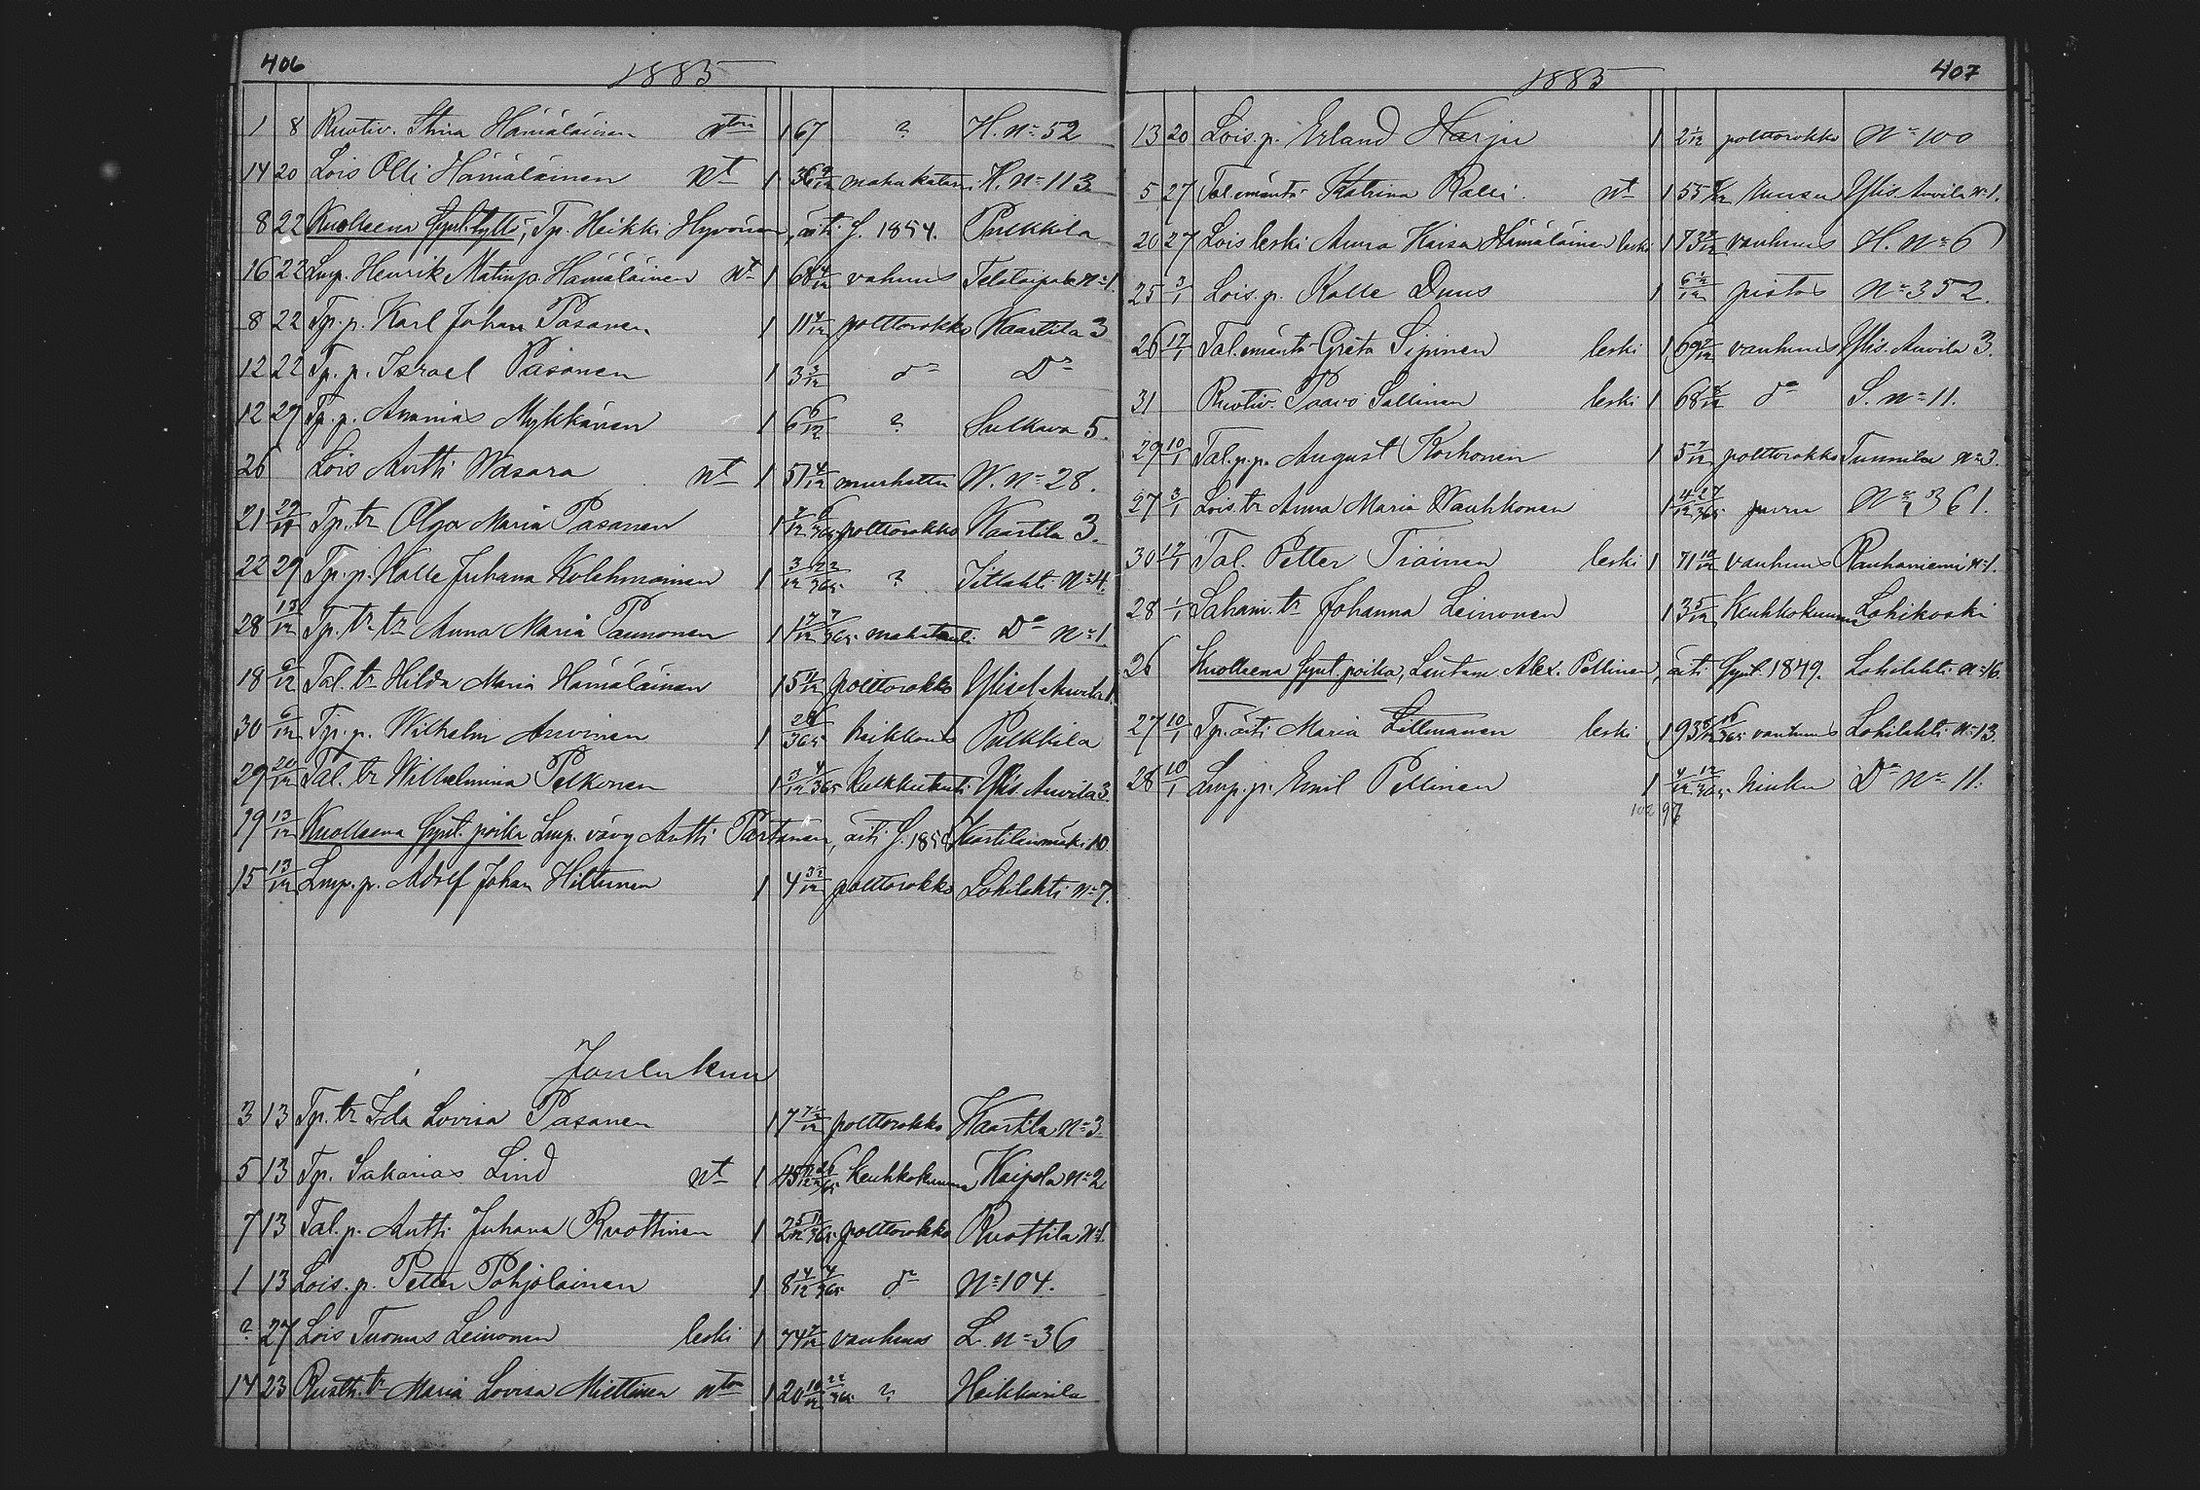 406
1885
1 8 Ruotiv. Stina Hämäläinen nton 1 67 ? H. No 52
14 20 Lois Olli Hämäläinen nt 1 36 9/12 mahakatarri H. No 113
8 22 Kuolleena synt. tyttö, Tp. Heikki Hyvönen, äiti S. 1854. Pulkkila
16 22 Lmp. Henrik Matinp. Hämäläinen nt 1 68 4/12 vahuus Telataipale No 1.
8 22 Tp. p. Karl Johan Pasanen 1 11 4/12 polttorokko Kaartila 3
12 22 Tp. p. Israel Pasanen 1 3 3/12 do Do
12 29 Tp. p. Ananias Mykkänen 1 6 6/12 ? Sulkava 5.
26 Lois Antti Wasara nt 1 51 4/12 murhattu W. No 28.
21 29/11 Tp. tr Olga Maria Pasanen 1 polttorokko Kaartila 3.
22 29 Tp. p. Kalle Juhana Kolehmainen 1 3/12 22/365 ? Iitlahti No 4.
28 13/12 Tp. tr tr Anna Maria Paunonen 1 1 Do No 1.
18 6/12 Tal. tr Hilda Maria Hämäläinen 1 5 polttorokko Ylis. Auvila 1.
30 6/12 Tp. p. Wilhelm Auvinen 1 28/365 heikkous Pulkkila
29 20/12 Tal. tr Wilhelmina Pelkonen 1 3/12 4/365 Ylis Auvila 3.
19 13/12 Kuolleena Synt. poika Lmp. vävy Antti Partanen, äiti S. Kaartilanmäki 10.
15 13/12 Lmp. p. Adolf Johan Hiltunen 1 4 polttorokko Lohilahti No 7.
Joulukuu
3 13 Tp. tr Ida Lovisa Pasanen 1 7 polttorokko Kaartila No 3.
5 13 Tp. Sakarias Lind nt 1 45 keuhkokuume Kaipola No 2
7 13 Tal. p. Antti Juhana Ruottinen 1 2 5/12 11/365 polttorokko Ruottila No 1.
1 13 Lois. p. Petter Pohjolainen 1 8 4/12 4/365 do No 104.
? 27 Lois Tuomas Leinonen leski 1 74 vanhuus L. No 36
14 23 Rusth. tr Maria Lovisa Miettinen nton 1 20 10/12 22/365 ? Heikkurila
407
1885
13 20 Lois. p. Erland Harju 1 2 1/12 polttorokko No 100
5 27 Tal. emäntä Katrina Ralli nt 1 55 Ylis. Auvila No 1.
20 27 Lois leski Anna Kaisa Hämäläinen leski 1 73 vanhuus H. No 6
25 3/1 Lois. p. Kalle Duus 1 pistos No 352.
26 17/1 Tal. emäntä Greta Sipinen leski 1 69 vanhuus Ylis. Auvila 3.
31 Ruotiv. Paavo Sallinen leski 1 68 do S. No 11.
29 10/1 Tal. p. p. August Korhonen 1 5 7/12 polttorokko Tunnila No 3.
27 3/1 Lois. tr Anna Maria Wauhkonen 1 4/12 27/365 No 361.
30 17/1 Tal. Petter Tiainen leski 1 71 10/12 vanhuus Rauhaniemi No 1.
28 1/1 Saham. tr Johanna Leinonen 1 3 5/12 Keuhkokuume Lohikoski
26 Kuolleena synt. poika, Lautam. Alex. Pellinen, äiti Synt. 1849. Lohilahti No 16.
27 10/1 Tp. äiti Maria Lillmanen leski 1 93 vanhuus Lohilahti No 13.
28 10/1 Lmp. p. Emil Pellinen 1 4/12 12/365 hinku Do No 11.
102 97